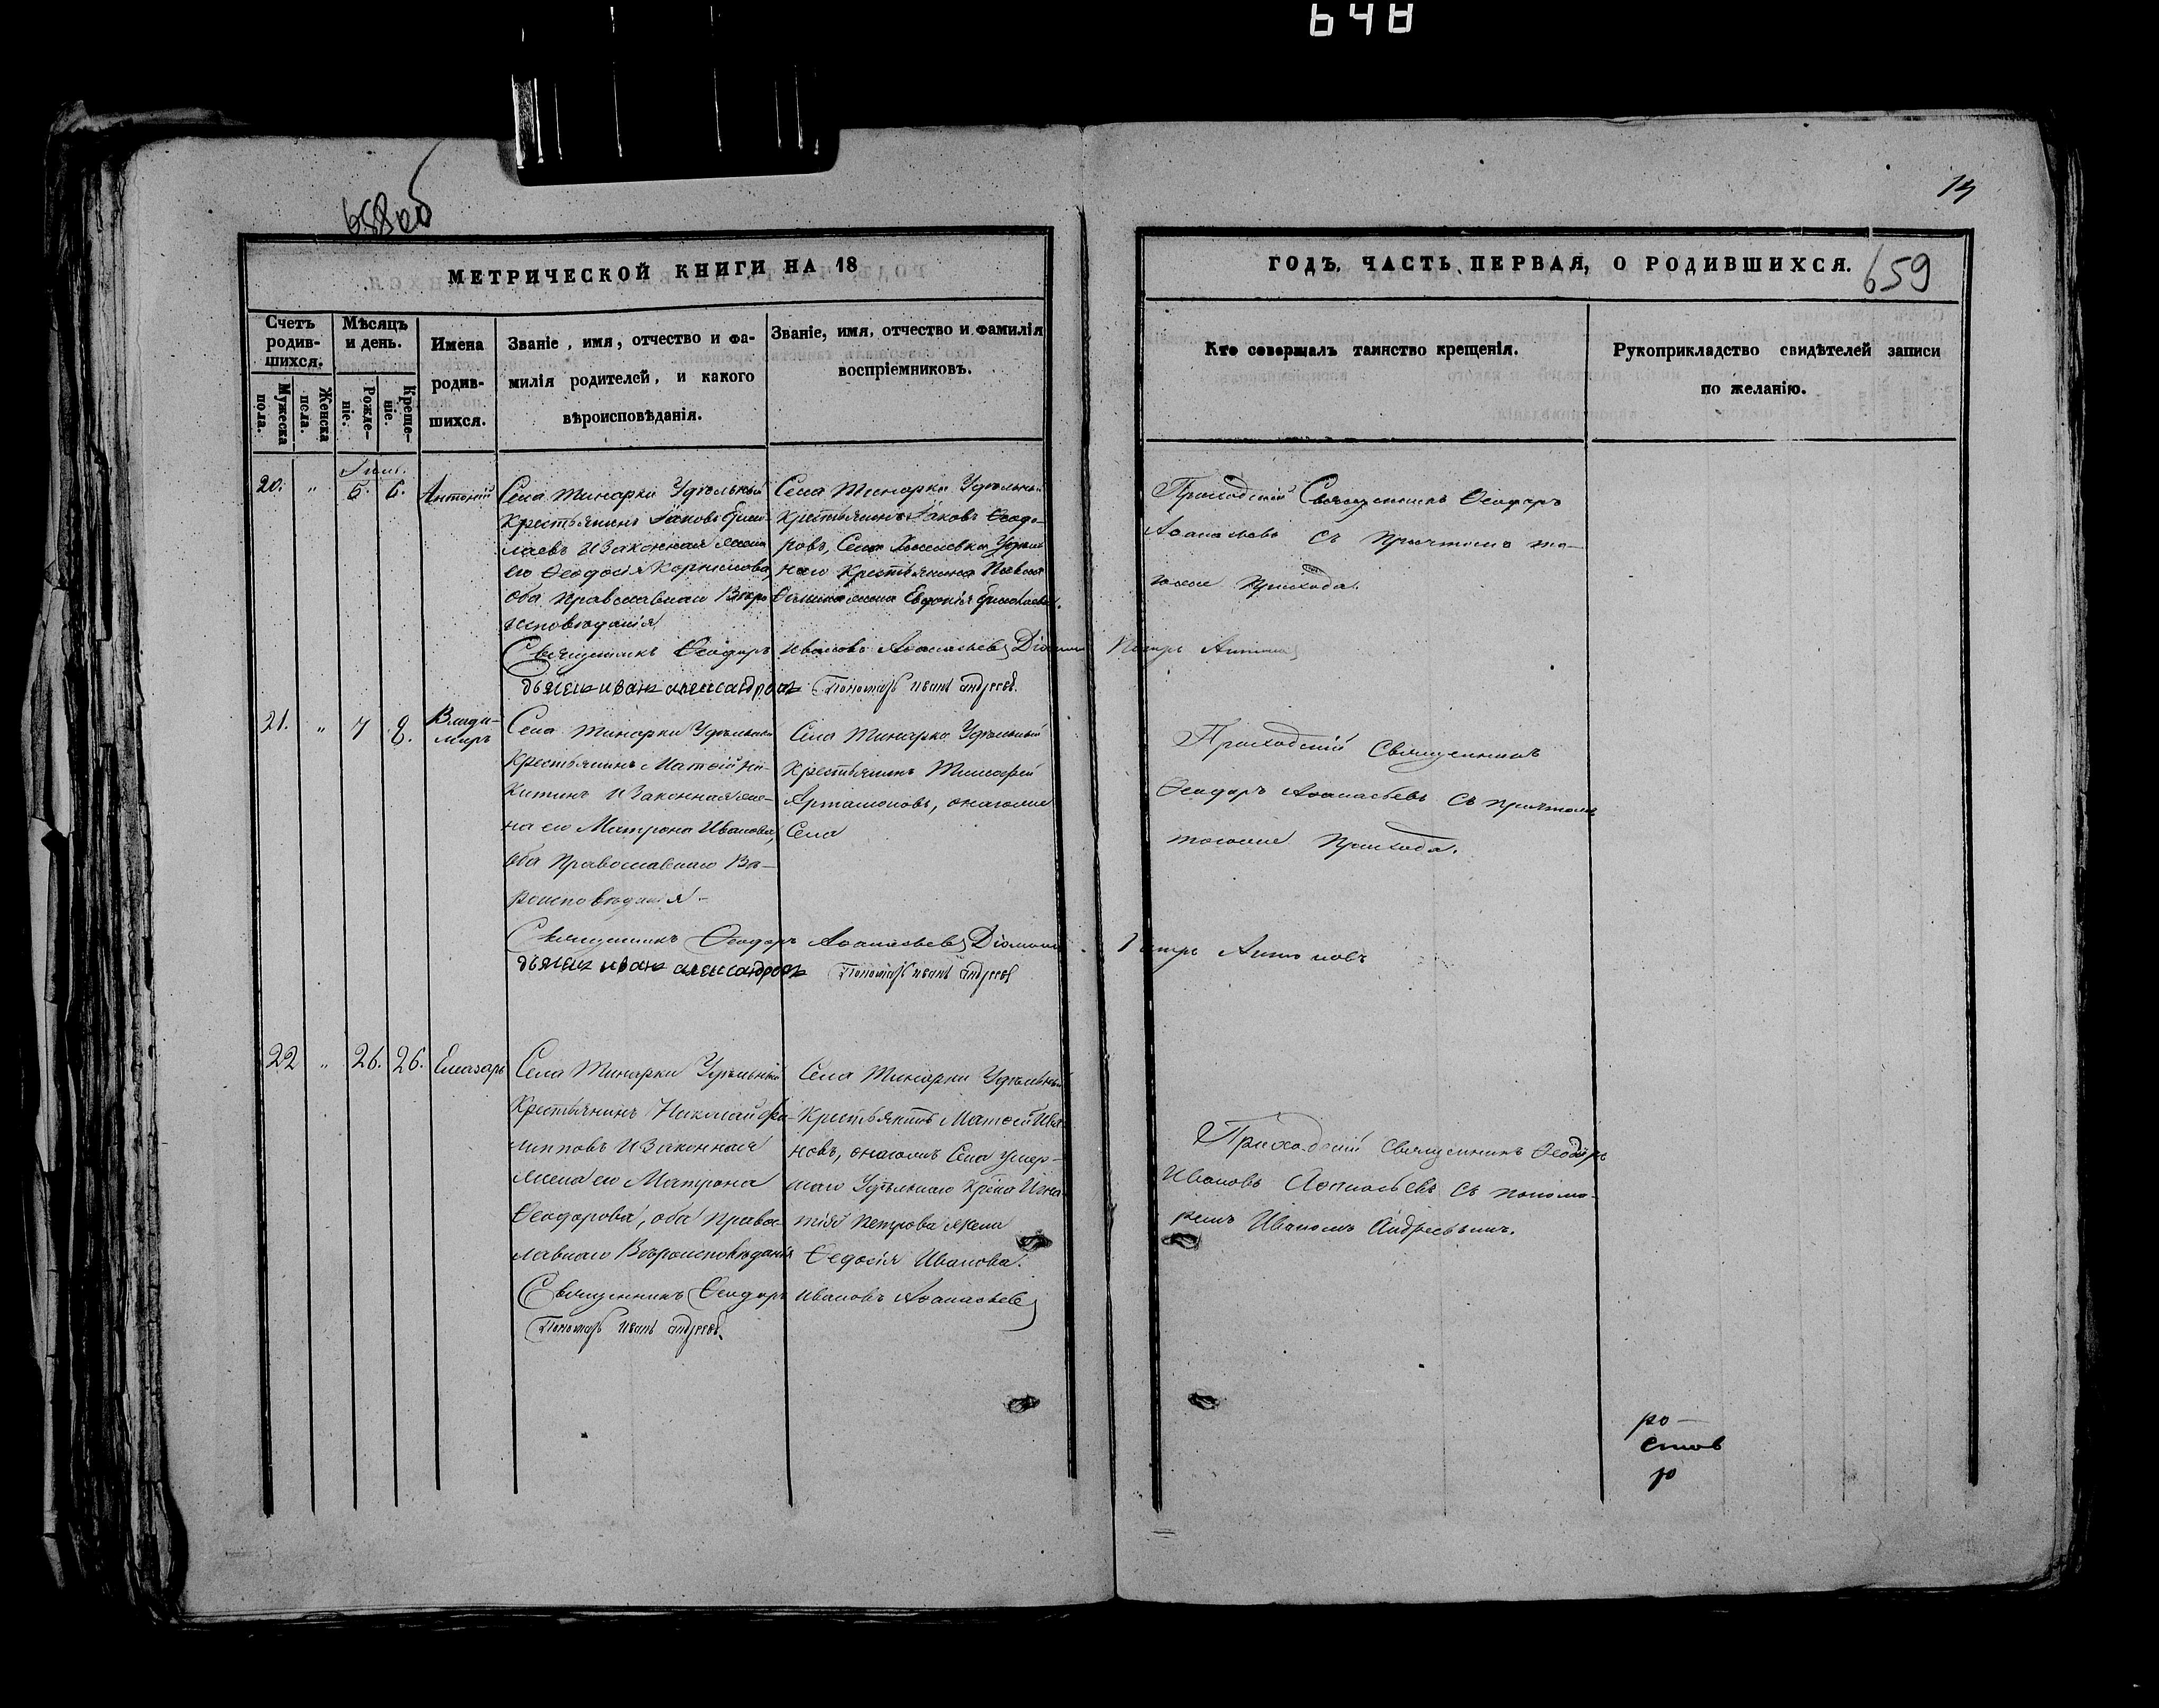 648
658об
14
659
МЕТРИЧЕСКОЙ КНИГИ НА 18
ГОДЪ. ЧАСТЬ ПЕРВАЯ, О РОДИВШИХСЯ.
Счетъ родив-шихся.
Мужеска пола.
Женска пола.
Мѣсяцъ и день.
Рожде-ніе.
Креще-ніе.
Имена родив-шихся.
Званіе, имя, отчество и фа-
милія родителей, и какого
вѣроисповѣданія.
Званіе, имя, отчество и фамилія
воспріемниковъ.
Кто совершалъ таинство крещенія.
Рукоприкладство свидѣтелей записи
по желанію.
20. " 5. 6. Антоній
Села Тинарки Удѣльный
Крестьянинъ Іаковъ Ермо-
лаевъ и Законная жена
его Ѳеодосія Корнилова,
оба Православнаго Вѣро
исповѣданія
Села Тинарки Удѣльный
Крестьянинъ Іаковъ Ѳеодо-
ровъ, Села Удѣль
наго Крестьянина Павла
жена Евдокія Ермолаева.
Приходскій Священникъ Ѳеодоръ
Аѳанасьевъ съ Причтомъ то-
гоже Прихода.
Священникъ Ѳеодоръ Ивановъ Аѳанасьевъ Діаконъ Петръ Антоновъ
дьячекъ иванъ александровъ Пономарь иванъ андреевъ.
21. " 7 8. Влади-
миръ
Села Тинарки Удѣльный
Крестьянинъ Матѳій Ни-
китинъ и Законная же-
на его Матрона Иванова,
оба Православнаго Вѣ-
роисповѣданія -
Села Тинарки Удѣльный
Крестьянинъ Тимоѳей
Артамоновъ, онагоже
Села
Приходскій Священникъ
Ѳеодоръ Аѳанасьевъ съ причтомъ
тогоже Прихода.
Священникъ Ѳеодоръ Аѳанасьевъ Діаконъ Петръ Антоновъ
дьячекъ иванъ александровъ Пономарь иванъ андреевъ
22 " 26. 26. Елеазаръ
Села Тинарки Удѣльный
Крестьянинъ Николай Фи-
липповъ и Законная
жена его Матрона
Ѳеодорова, оба Правос-
лавнаго Вѣроисповѣданія
Села Тинарки Удѣльный
Крестьянинъ Матѳій Ива
новъ, онагожъ Села умер-
шаго Удѣльнаго Кр-на Игна
тія Петрова жена
Ѳедосія Иванова.
Приходскій Священникъ Ѳеодоръ
Ивановъ Аѳанасьевъ съ Понома-
ремъ Иваномъ Андреевымъ.
Священникъ Ѳеодоръ Ивановъ Аѳанасьевъ
Пономарь иванъ андреевъ.